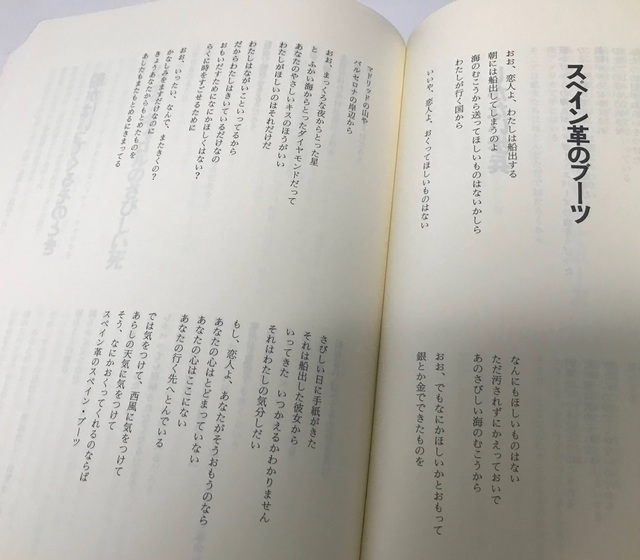 スペイン革のブーツ
おお、恋人よ、わたしは船出する
朝には船出してしまうのよ
海のむこうから送ってほしいものはないかしら
わたしが行く国から
いいや、恋人よ、おくってほしいものはない
なんにもほしいものはない
ただ汚されずにかえっておいで
あのさびしい海のむこうから
おお、でもなにかほしいかとおもって
銀とか金でできたものを
マドリッドの山や
バルセロナの岸辺から
おお、まっくらな夜からとった星
と　ふかい海からとったダイヤモンドだって
あなたのやさしいキスのほうがいい
わたしがほしいのはそれだけだ
わたしはながいこといってるから
だからわたしはきいているだけなの
おもいだすためになにかほしくはない？
らくに時をすごせるために
おお、いったい、なんで、またきくの？
かなしみをますだけなのに
きょうあなたからもとめたものを
あしたもまたもとめるにきまってる
さびしい日に手紙がきた
それは船出した彼女から
いってきた　いつかえるかわかりません
それはわたしの気分しだい
もし、恋人よ、あなたがそうおもうのなら
あなたの心はとどまっていない
あなたの心はここにない
あなたの行く先へとんでいる
では気をつけて、西風に気をつけて
あらしの天気に気をつけて
そう、なにかおくってくれるのならば
スペイン革のスペイン・ブーツ